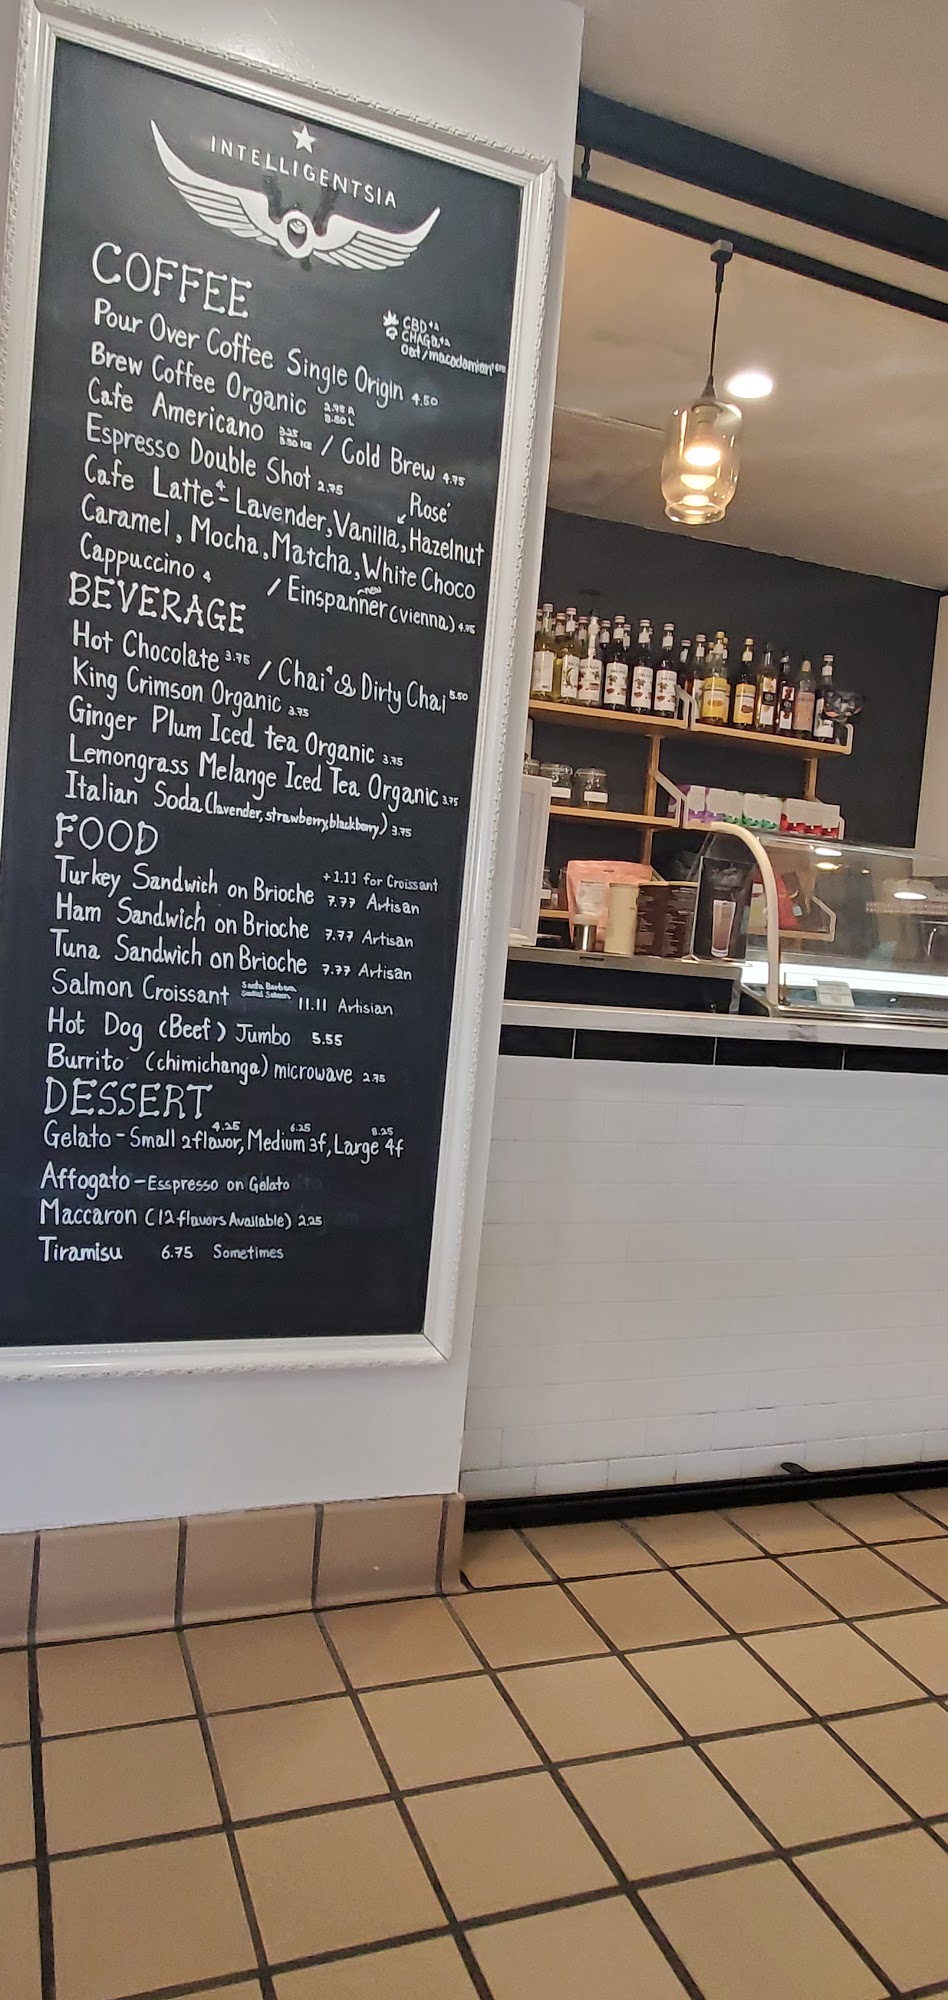 INTELLIGENTSIA
COFFEE
CBD +2
CHAGA +2
Oat/macadamian
Pour Over Coffee Single Origin 4.50
Brew Coffee Organic
Cafe Americano / Cold Brew 4.75
Espresso Double Shot 2.75
Rosé
Cafe Latte 4 - Lavender, Vanilla, Hazelnut
Caramel, Mocha, Matcha, White Choco
Cappuccino 4 / Einspanner (vienna) 4.75
new
BEVERAGE
Hot Chocolate 3.75 / Chai 4 & Dirty Chai 5.50
King Crimson Organic 3.75
Ginger Plum Iced tea Organic 3.75
Lemongrass Melange Iced Tea Organic 3.75
Italian Soda (lavender, strawberry, blackberry) 3.75
FOOD
+1.11 for Croissant
Turkey Sandwich on Brioche 7.77 Artisan
Ham Sandwich on Brioche 7.77 Artisan
Tuna Sandwich on Brioche 7.77 Artisan
Salmon Croissant 11.11 Artisian
Hot Dog (Beef) Jumbo 5.55
Burrito (chimichanga) microwave 2.75
DESSERT
4.25 6.25 8.25
Gelato - Small 2 flavor, Medium 3f, Large 4f
Affogato - Esspresso on Gelato
Maccaron (12 flavors Available) 2.25
Tiramisu 6.75 Sometimes